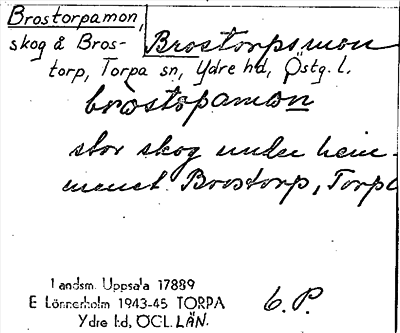 Brostorpamon,
skog å Bros- Brostorpsmon
torp, Torpa sn, Ydre hd, Östg. l.
bròstòpamon
stor skog under hem-
manet Brostorp, Torpa
Landsm. Uppsala 17889
E Lönnerholm 1943-45 TORPA
Ydre hd, ÖGL. LÄN.
6. P.